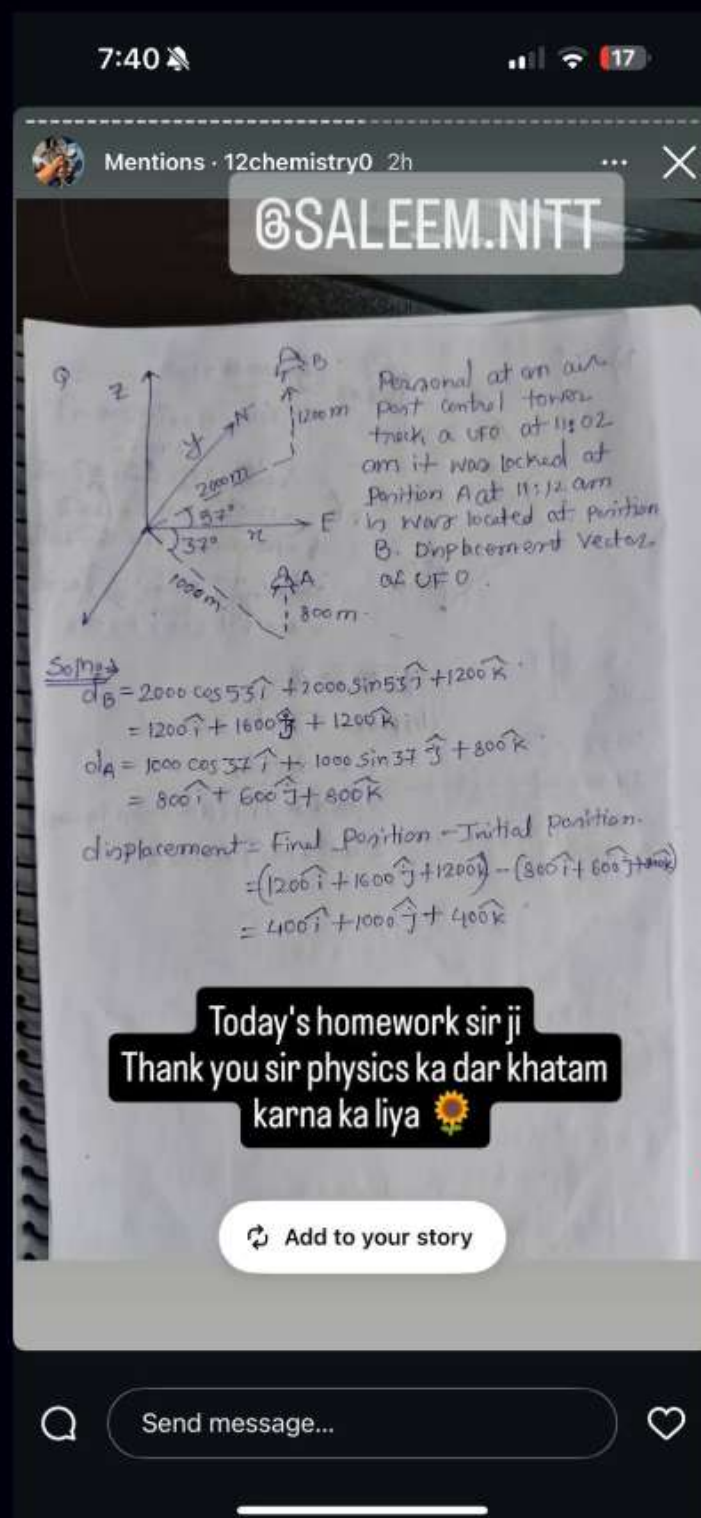 7:40
17
Mentions · 12chemistry0 2h
@SALEEM.NITT
Q
Z
B
Personal at an air
1200m
port control tower
N
track a UFO at 11:02
y
am it was locked at
2000m
Position A at 11:12 am
E
is was located at position
x
37°
B. Displacement Vector
A
of UFO.
1000m
800m
Soln
dB = 2000 cos 53 î + 2000 Sin 53 ĵ + 1200 k̂
= 1200 î + 1600 ĵ + 1200 k̂
dA = 1000 cos 37 î + 1000 Sin 37 ĵ + 800 k̂
= 800 î + 600 ĵ + 800 k̂
displacement = Final Position - Initial position.
= (1200 î + 1600 ĵ + 1200 k̂) - (800 î + 600 ĵ +
= 400 î + 1000 ĵ + 400 k̂
Today's homework sir ji
Thank you sir physics ka dar khatam
karna ka liya
Add to your story
Send message...